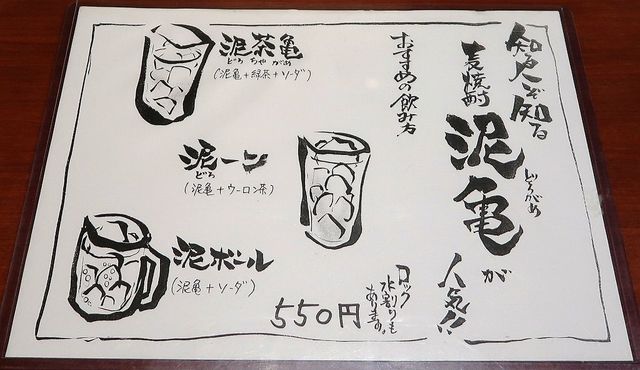 知る人ぞ知る
麦焼酎
泥亀
どろがめ
が
人気!!
おすすめの飲み方
泥茶亀
どろちゃがめ
(泥亀+緑茶+ソーダ)
泥ーン
どろ
(泥亀+ウーロン茶)
泥ボール
(泥亀+ソーダ)
550円
ロック
水割りも
あります。